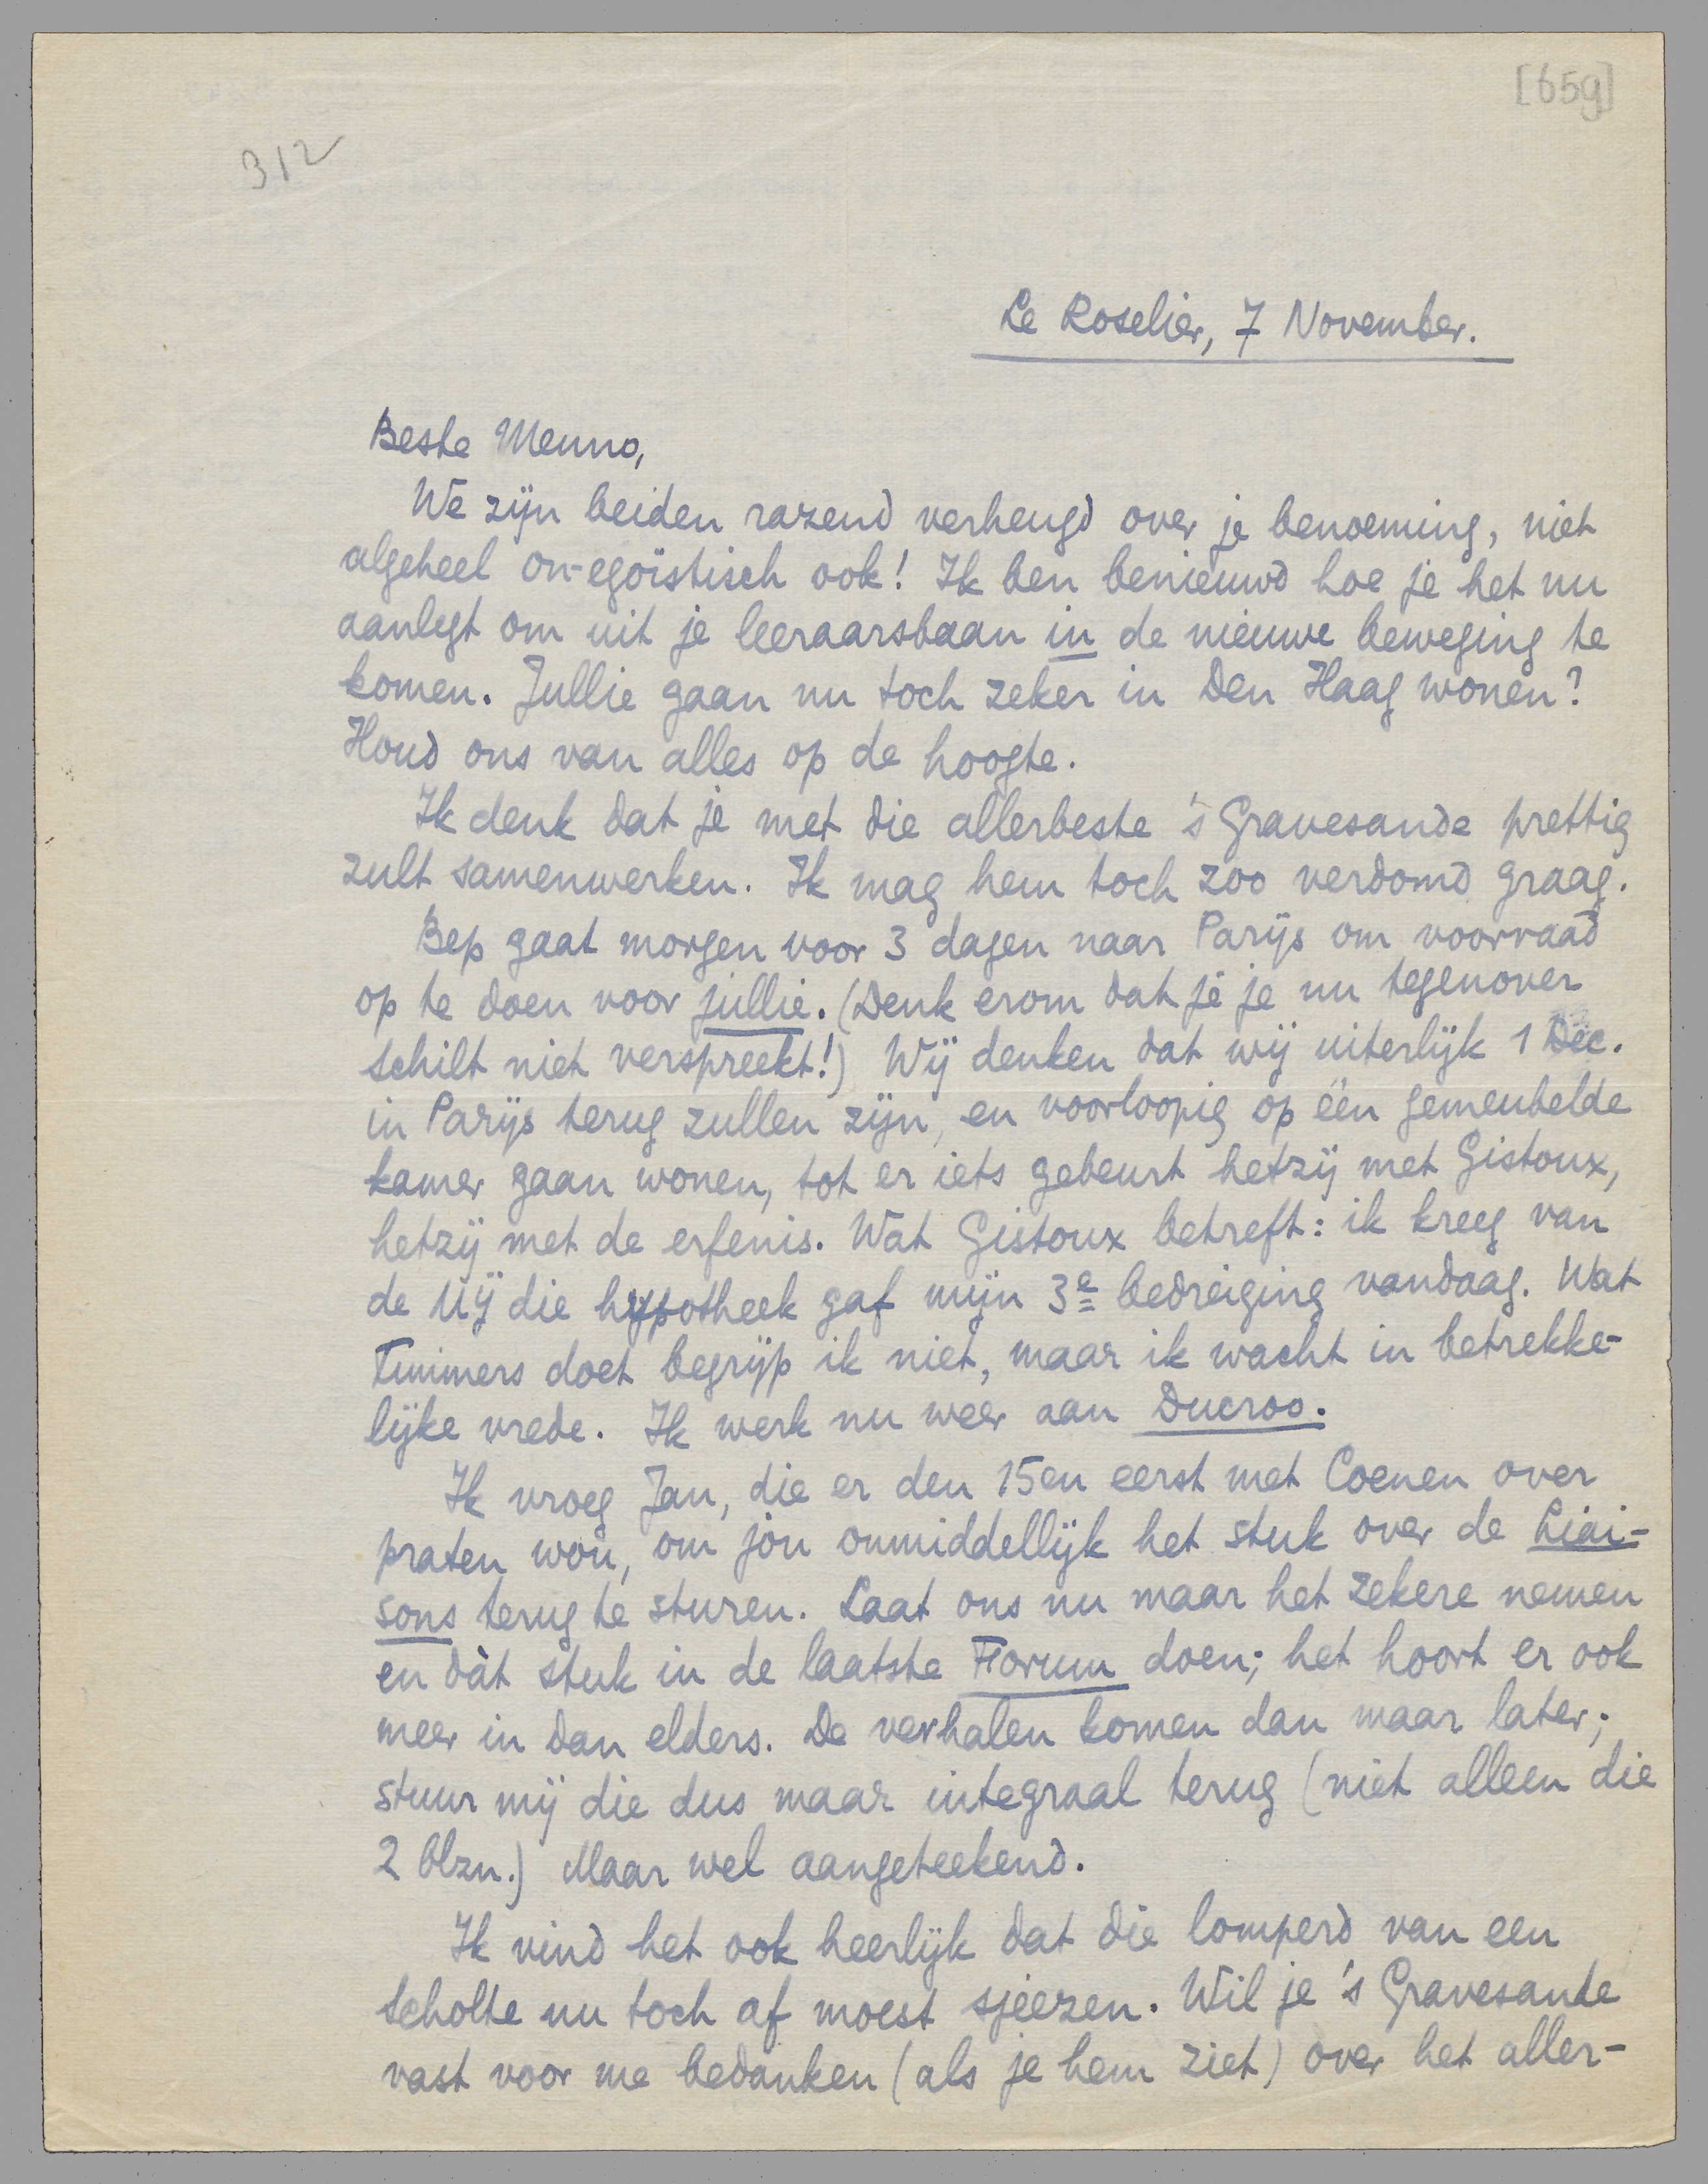 [659]
312
Le Roselier, 7 November.
Beste Menno,
We zijn beiden razend verheugd over je benoeming, niet
algeheel on-egoïstisch ook! Ik ben benieuwd hoe je het nu
aanlegt om uit je leeraarsbaan in de nieuwe beweging te
komen. Jullie gaan nu toch zeker in Den Haag wonen?
Houd ons van alles op de hoogte.
Ik denk dat je met die allerbeste 's Gravesande prettig
zult samenwerken. Ik mag hem toch zoo verdomd graag.
Bep gaat morgen voor 3 dagen naar Parijs om voorraad
op te doen voor jullie. (Denk erom dat je je nu tegenover
Schilt niet verspreekt!) Wij denken dat wij uiterlijk 1 Dec.
in Parijs terug zullen zijn, en voorloopig op één gemeubelde
kamer gaan wonen, tot er iets gebeurt hetzij met Gistoux,
hetzij met de erfenis. Wat Gistoux betreft: ik kreeg van
de Mij die hypotheek gaf mijn 3e bedreiging vandaag. Wat
Timmers doet begrijp ik niet, maar ik wacht in betrekke-
lijke vrede. Ik werk nu weer aan Ducroo.
Ik vroeg Jan, die er den 15en eerst met Coenen over
praten wou, om jòu onmiddellijk het stuk over de Liai-
sons terug te sturen. Laat ons nu maar het zekere nemen
en dàt stuk in de laatste Forum doen; het hoort er ook
meer in dan elders. De verhalen komen dan maar later;
stuur mij die dus maar integraal terug (niet alleen die
2 blzn.) Maar wel aangeteekend.
Ik vind het ook heerlijk dat die lomperd van een
Scholte nu toch af moest sjeezen. Wil je 's Gravesande
vast voor me bedanken (als je hem ziet) over het aller-